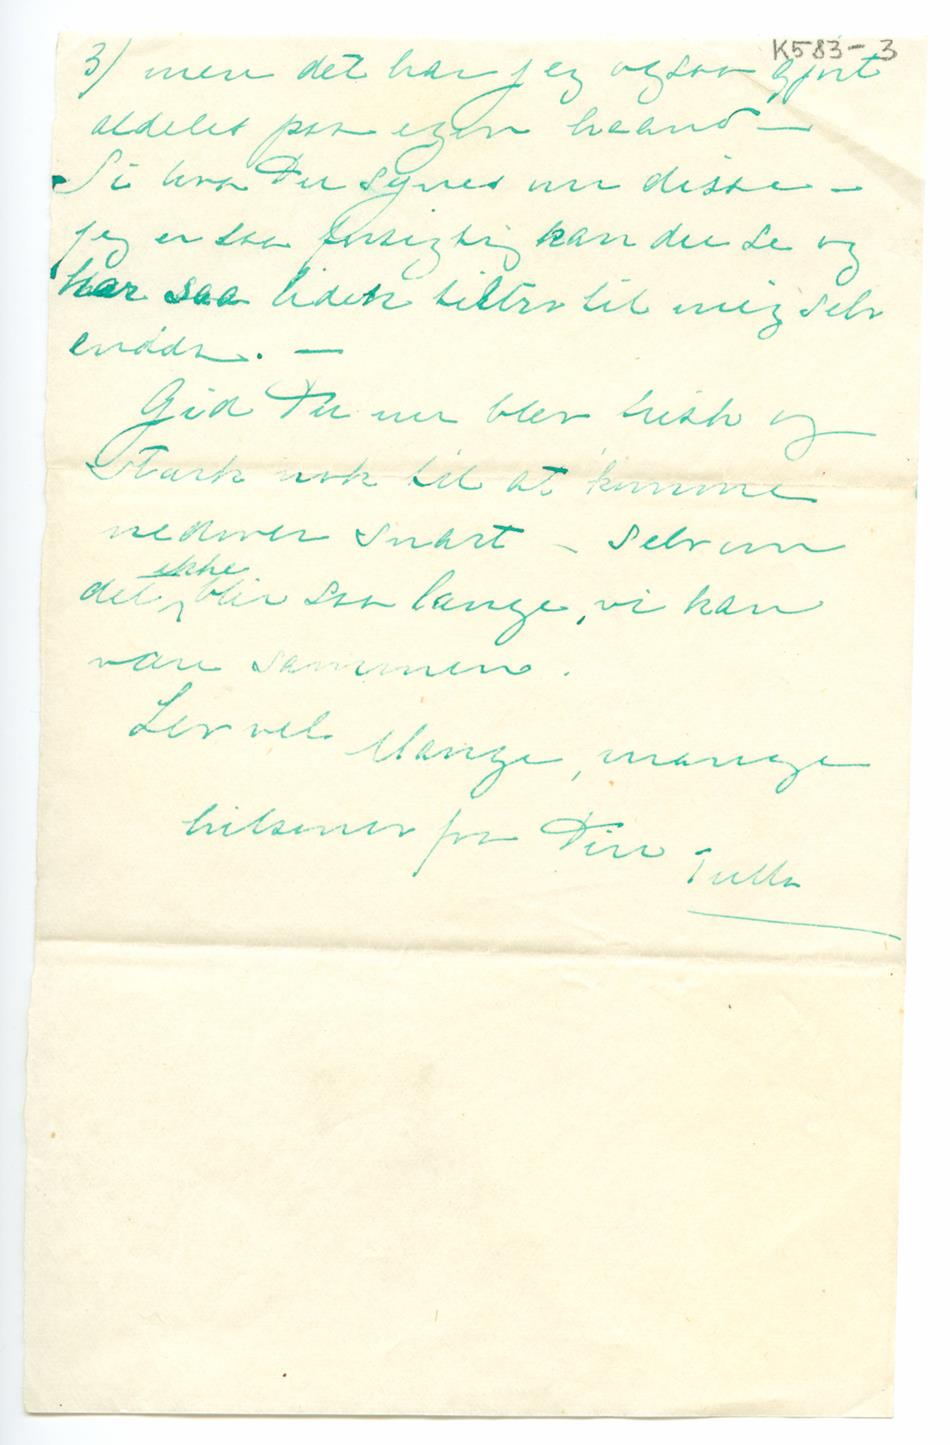 K583-3
3/ men det har jeg ogsaa gjort
aldeles paa egen haand —
Si hva Du synes om disse —
jeg er saa forsigtig kan du se og
har saa liden tiltro til mig selv
endda. —
Gid Du nu blev frisk og
stærk nok til at komme
nedover snart – selv om
det ikke blir saa længe, vi kan
være sammen.
Lev vel. Mange, mange
hilsener fra Din Tulla